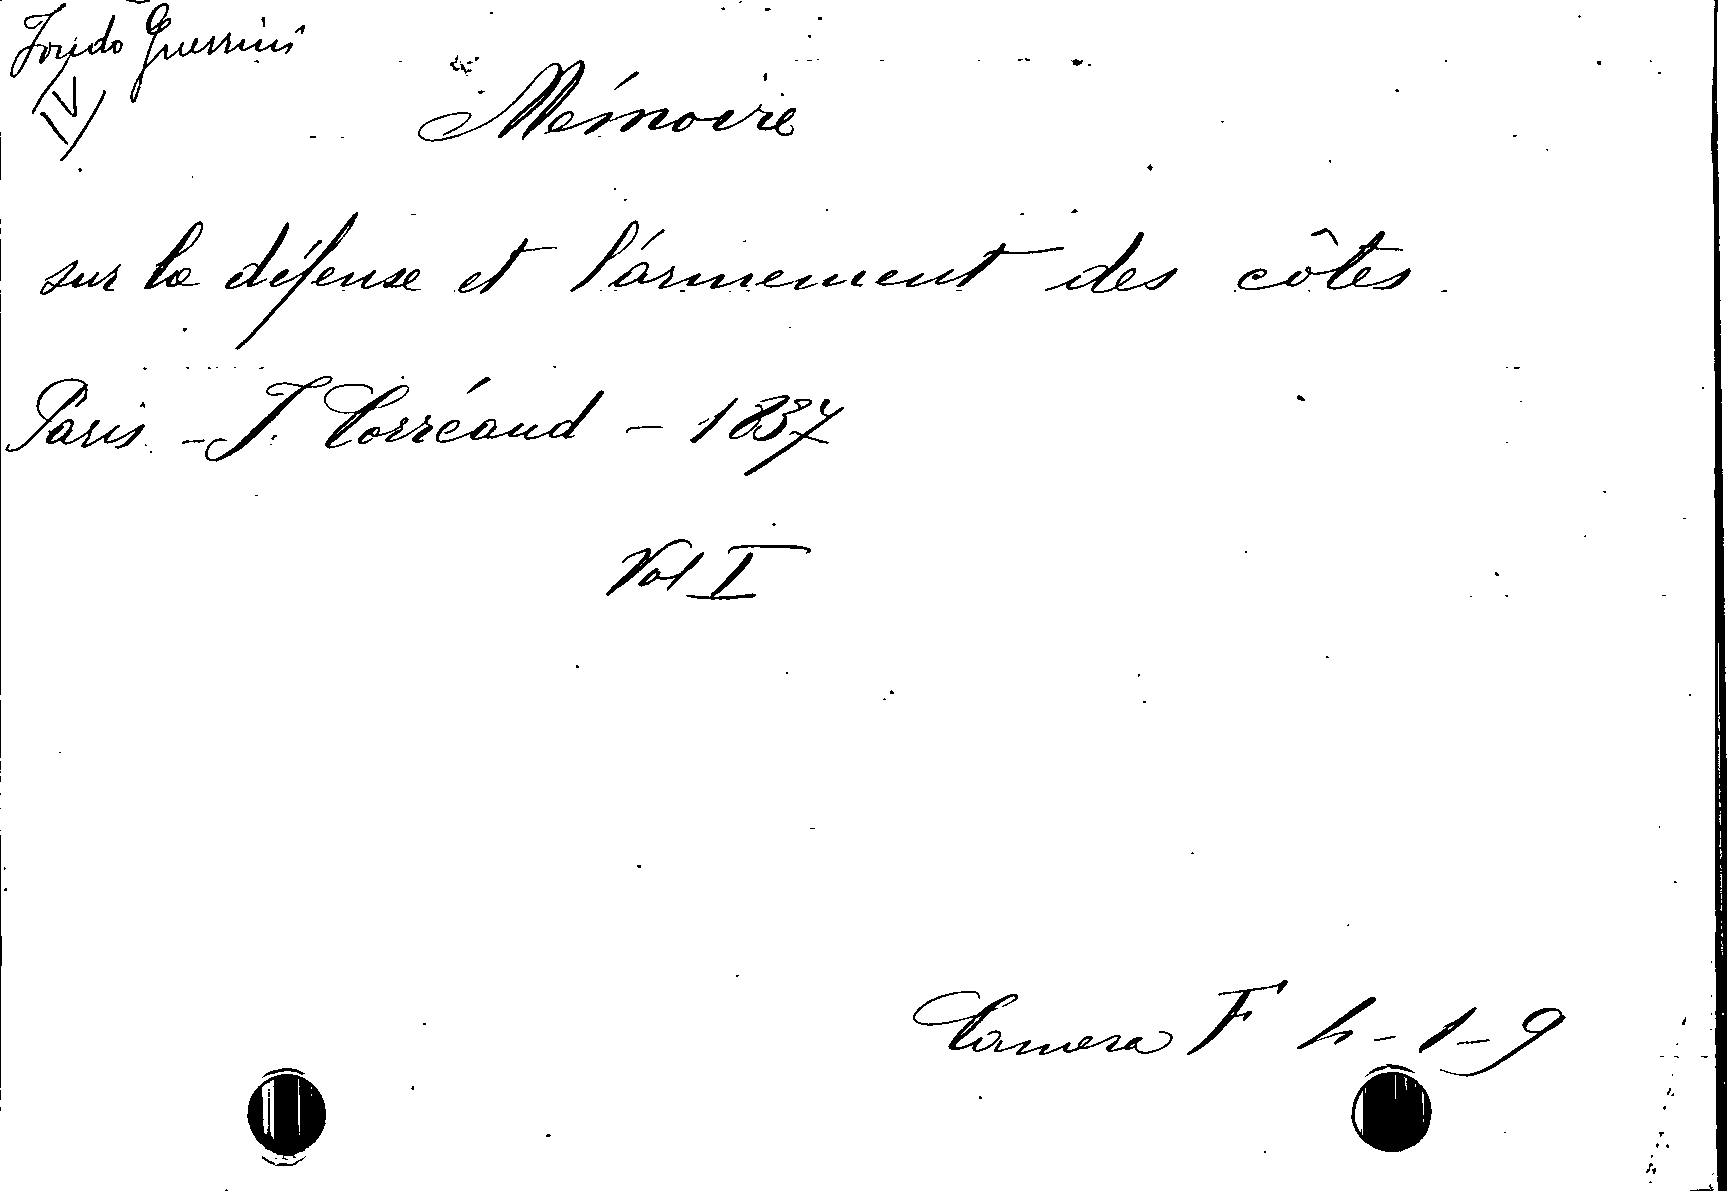 Fondo Guerrini
IV
Mémoire
sur la défense et l'armement des côtes
Paris - J. Corréaud - 1837
Vol I
Camera F 4-1-9